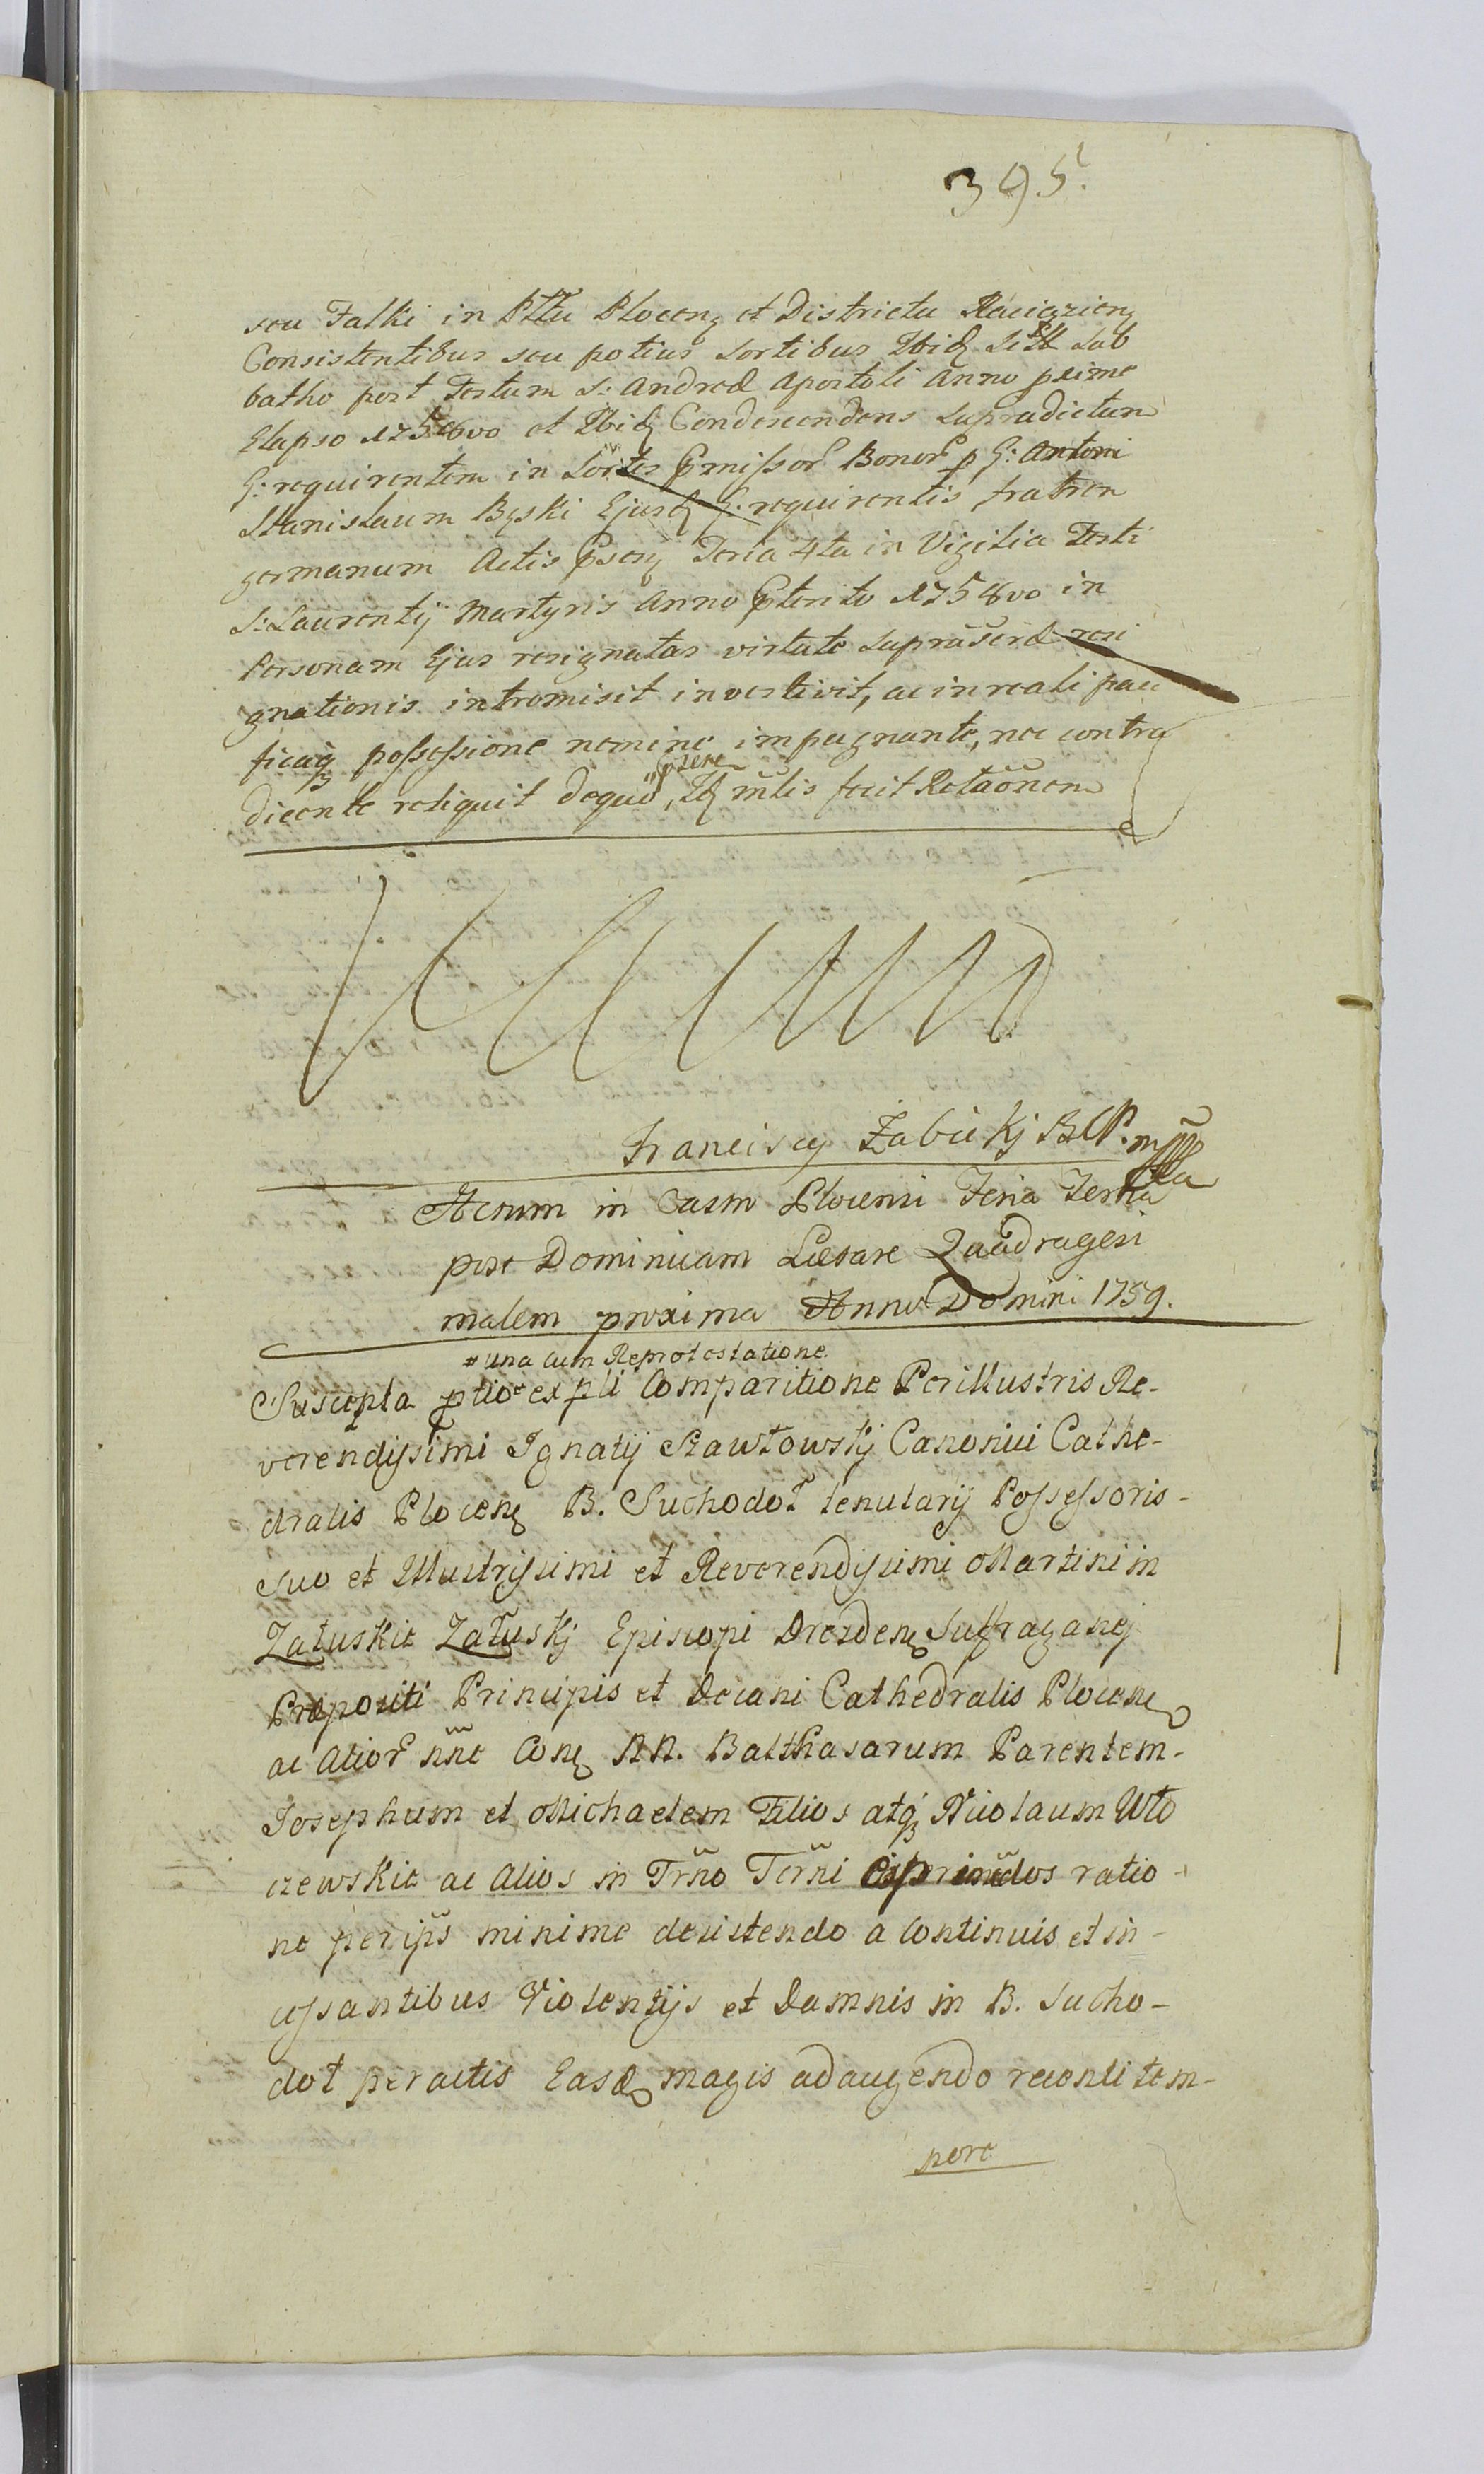 395.
seu Falki in Pttu Plocenę et Districtu Raciązienę
Consistentibus seu potius sortibus Ibidę Sitt Sab
batho post Festum S: Andreæ Apostoli Anno pxime
Elapso 1758vo et Ibidę Condescendens supradictum
G: requirentem in Sortes pmissor Bonor p G: Antoni
Stanislaum Bęski Ejusdę G: requirentis fratren
germanum Actis psenę Feria 4ta in Vigilia Festi
S: Laurentij Martyris Anno pterito 1758vo in
Personam Ejus resignatas virtute suprascræ resi
gnationis intromisit investivit, ac in reali paci
ficaqꝫ possessione nemine impugnante, nec contra
dicente reliquit dequo, Idę mlis fecit Relaõnem
Franciscy Zabickj BCP. mp
Actum in Castro Plocensi Feria Tertia
post Dominicam Lætare Quadragesi
malem proxima Anno Domini 1759.
# una cum Reprotestatione.
Suscepta ptio ex pti Comparitione Perillustris Re-
verendissimi Ignatij Stawłowskj Canonici Cathe-
dralis Plocenę B. Suchodoł tenutarij Possessoris-
Suo et Illustrissimi et Reverendissimi Martini in
Załuskie Załuskj Episcopi Drezdenę Suffraganej
Præpositi Principis et Decani Cathedralis Plocenę
ac Alior nne Conę NN. Balthasarum Parentem-
Josephum et Michaelem Filios atqꝫ Nicolaum Wło
czewskie ac Alios in Trno Terni ratio-
ne per ips minime desistendo a Continuis et in-
cessantibus Violentijs et Damnis in B. Sucho-
doł peractis Easdę magis adaugendo recenti tem-
pore